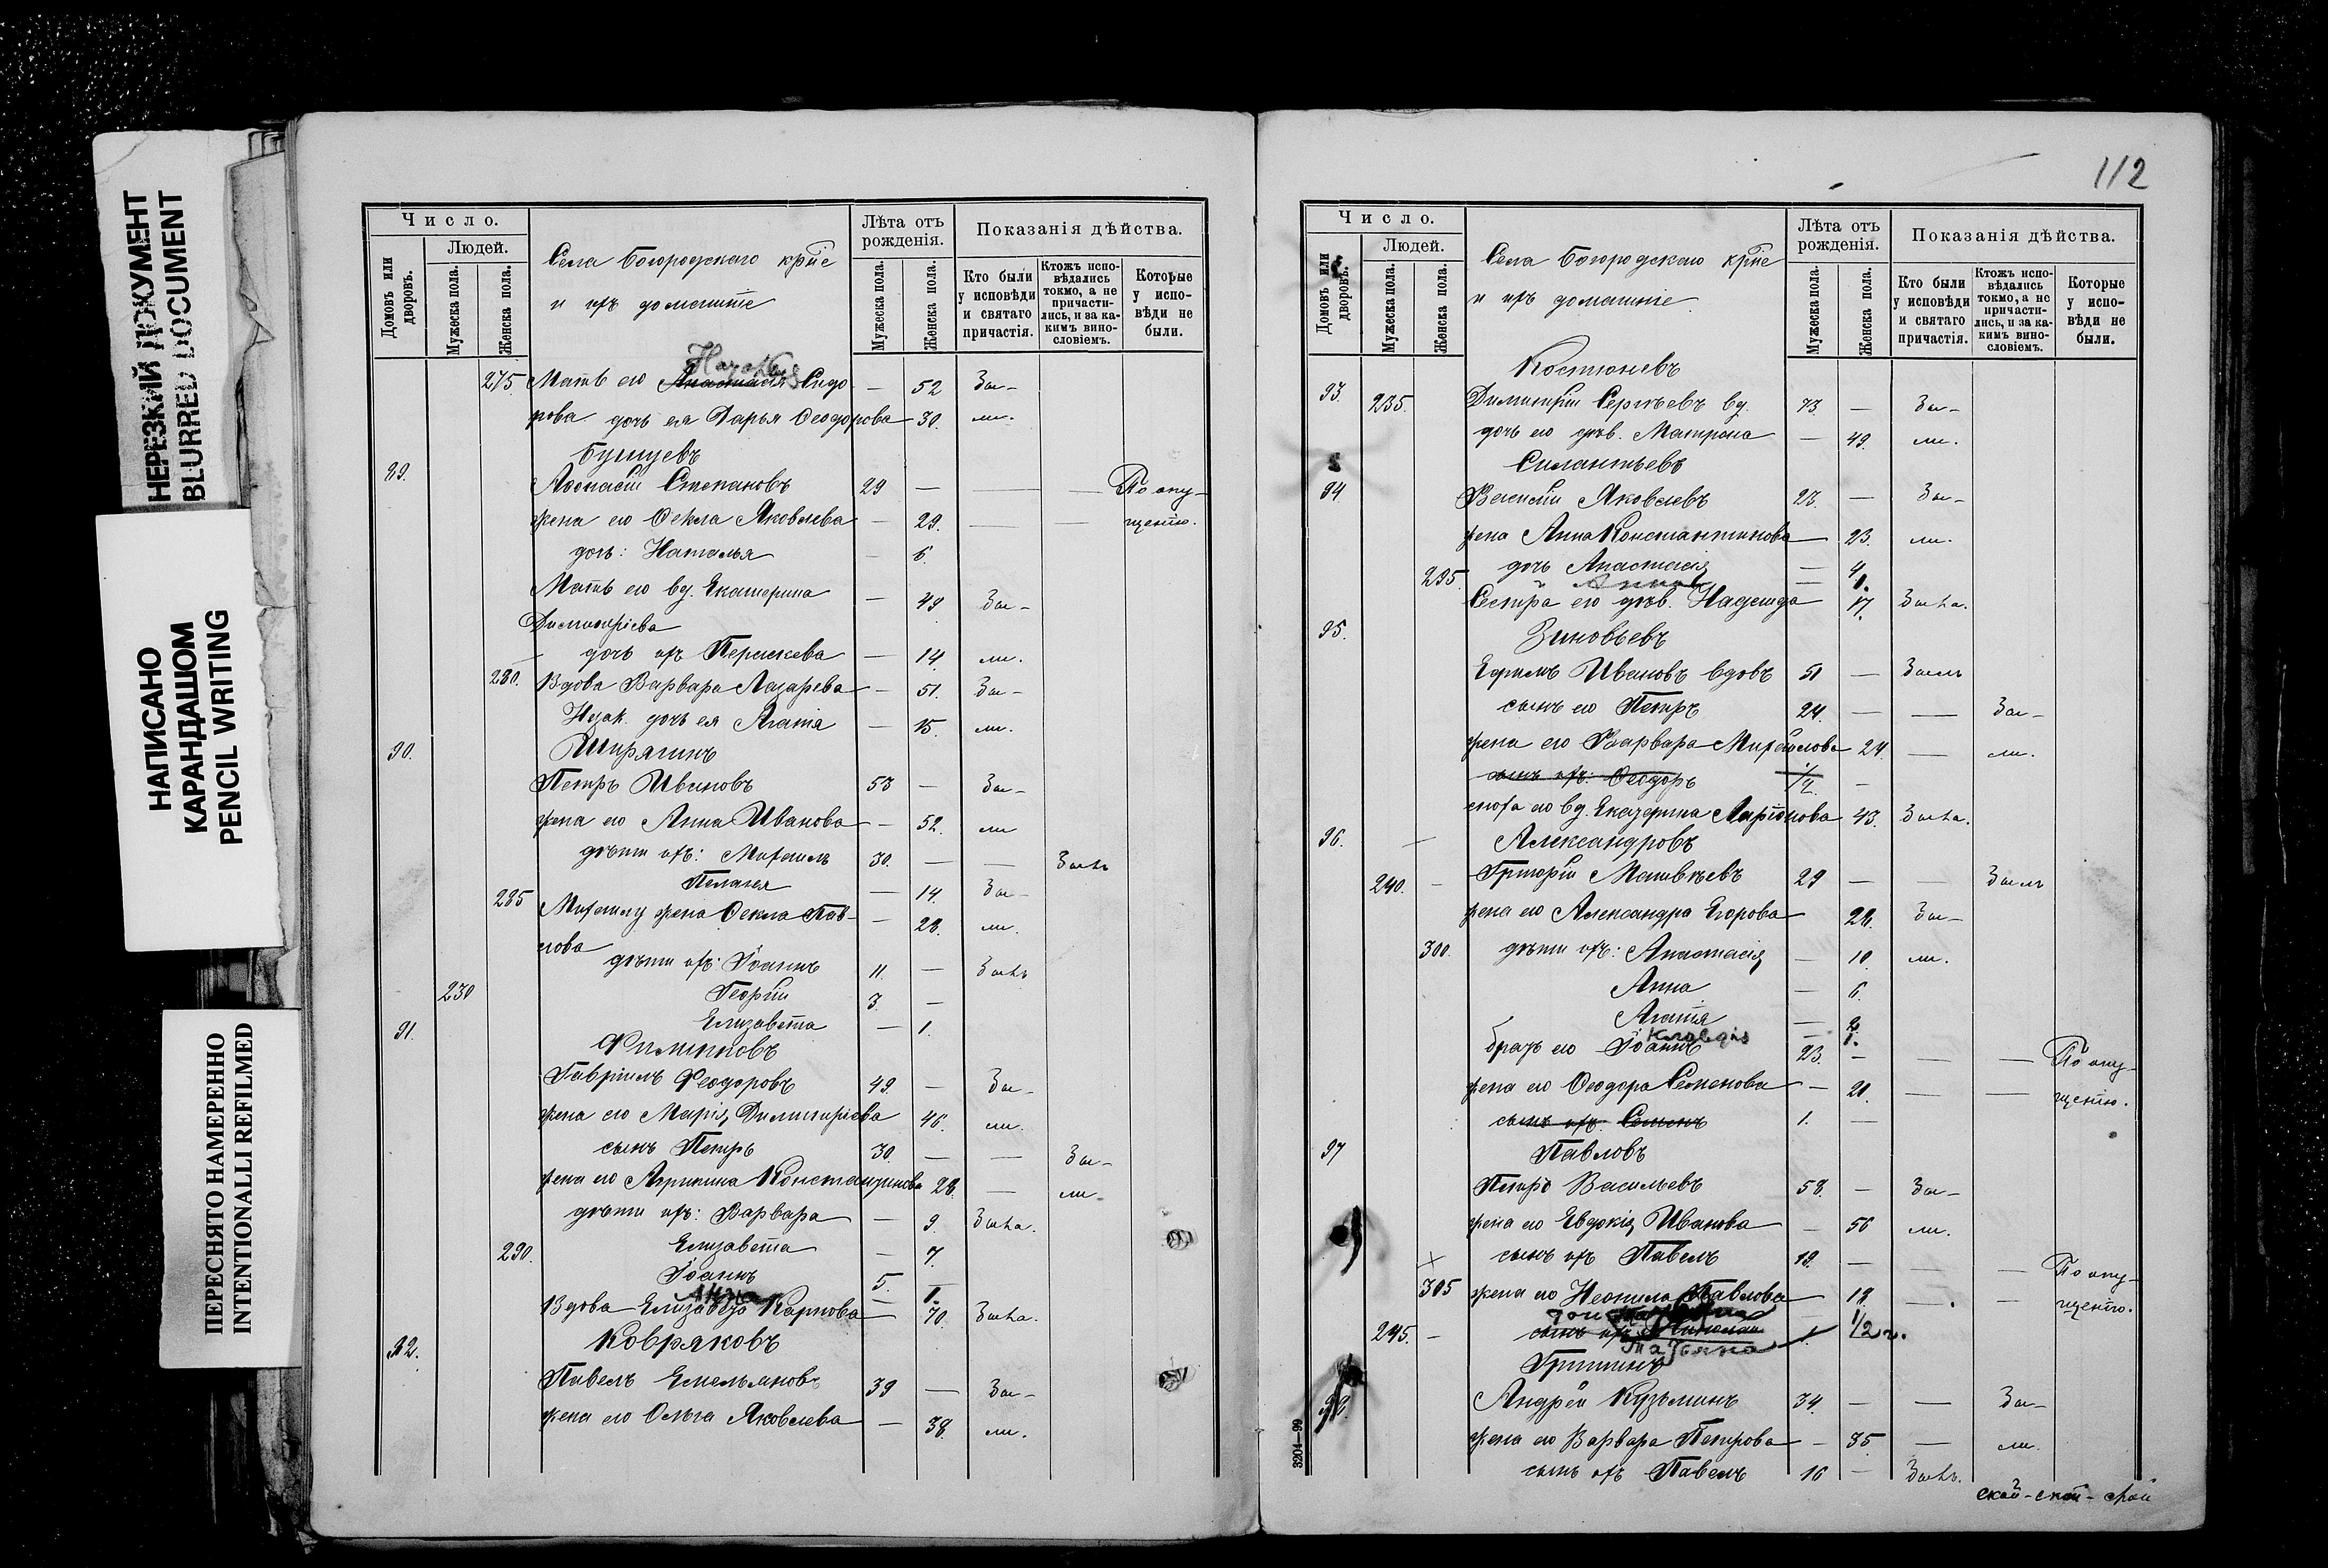 НЕРЕЗКИЙ ДОКУМЕНТ
BLURRED DOCUMENT
НАПИСАНО
КАРАНДАШОМ
PENCIL WRITING
ПЕРЕСНЯТО НАМЕРЕННО
INTENTIONALLI REFILMED
Число.
Людей.
Домовъ или дворовъ.
Мужеска пола.
Женска пола.
Села Богородскаго крⷭ҇те
и ихъ домашніе
Лѣта отъ рожденія.
Мужеска пола.
Женска пола.
Показанія дѣйства.
Кто были у исповѣди и святаго причастія.
Ктожъ исповѣдались токмо, а не причастились, и за какимъ винословіемъ.
Которые у исповѣди не были.
275. Мать его Анастасія Сидо — 52 Бы-
рова дочь ея Дарья Ѳеодорова — 30. ли.
Бушуевъ
89. Аѳонасій Степановъ 29 — — — По опу-
жена его Ѳекла Яковлева — 29. — — щенію.
дочь: Наталья — 6.
Мать его вд. Екатерина — 49 Бы-
Димитріева
дочь ихъ Параскева — 14. ли.
280. Вдова Варвара Лазарева — 51. Бы-
Незак. дочь ея Агаѳія — 15. ли.
90. Ширягинъ
Петръ Ивановъ 53 — Бы-
жена его Анна Ивановa — 52. ли
дѣти ихъ: Михаилъ 30. — — Былъ
Пелагея — 14. Бы-
285 Михаилу жена Ѳекла Пав- — 28. ли.
лова
дѣти ихъ: Іоаннъ 11. — Былъ
230 Георгій 3. —
Елизавета — 1.
91. Филипповъ
Гавріилъ Ѳеодоровъ 49. — Бы-
жена его Марія Димитріева 46. ли.
сынъ Петръ 30. — — Бы-
жена его Агрипина Константинова 28. — ли-
дѣти ихъ: Варвара — 9. Была.
290. Елизавета — 7.
Іоаннъ 5. —
1.
Вдова Елизавета Карпова — 70. Была.
92. Ковряковъ
Павелъ Емельяновъ 39 — Бы-
жена его Ольга Яковлева — 38. ли.
112
Число.
Людей.
Домовъ или дворовъ.
Мужеска пола.
Женска пола.
Села Богородскаго крⷭ҇те
и ихъ домашніе
Лѣта отъ рожденія.
Мужеска пола.
Женска пола.
Показанія дѣйства.
Кто были у исповѣди и святаго причастія.
Ктожъ исповѣдались токмо, а не причастились, и за какимъ винословіемъ.
Которые у исповѣди не были.
93. 235. Димитрій Сергѣевъ вд. 73. — Бы-
дочь его дѣв. Матрона — 49. ли.
Силантьевъ
94. Василій Яковлевъ 27. — Бы-
жена Анна Константинова — 23. ли.
дочь Анастасія — 4
Анна — 1.
295. Сестра его дѣв. Надежда — 17. Была.
95. Зиновьевъ
Ефимъ Ивановъ вдовъ 51 — Былъ
сынъ его Петръ 24. — — Бы-
жена его Варвара Михайлова 24 — ли.
сынъ ихъ: Ѳеодоръ 1/2. —
сноха его вд. Екатерина Ларіонова 43. Была.
96. Александровъ
240. Григорій Матвѣевъ 29 — — Былъ
жена его Александра Егорова 28. Бы-
300. дѣти ихъ: Анастасія — 10. ли.
Анна — 6.
Агаѳія — 2.
Клавдія — 1.
братъ его Іоаннъ 23. — — — По опу-
жена его Ѳеодора Семенова — 20. — — щенію.
сынъ ихъ Семенъ 1. —
97 Павловъ
Петръ Васильевъ 58. — Бы-
жена его Евдокія Иванова — 56 ли.
сынъ ихъ Павелъ 19. — — — По опу-
305 жена его Неонила Павлова — 18. — — щенію.
245. сынъ ихъ Николай 1. 1/2 г.
Татьяна
Гришинъ
98. Андрей Кузьминъ 34. — — Бы-
жена его Варвара Петрова — 35 — ли.
сынъ ихъ Павелъ 16 — Былъ.
3204—99